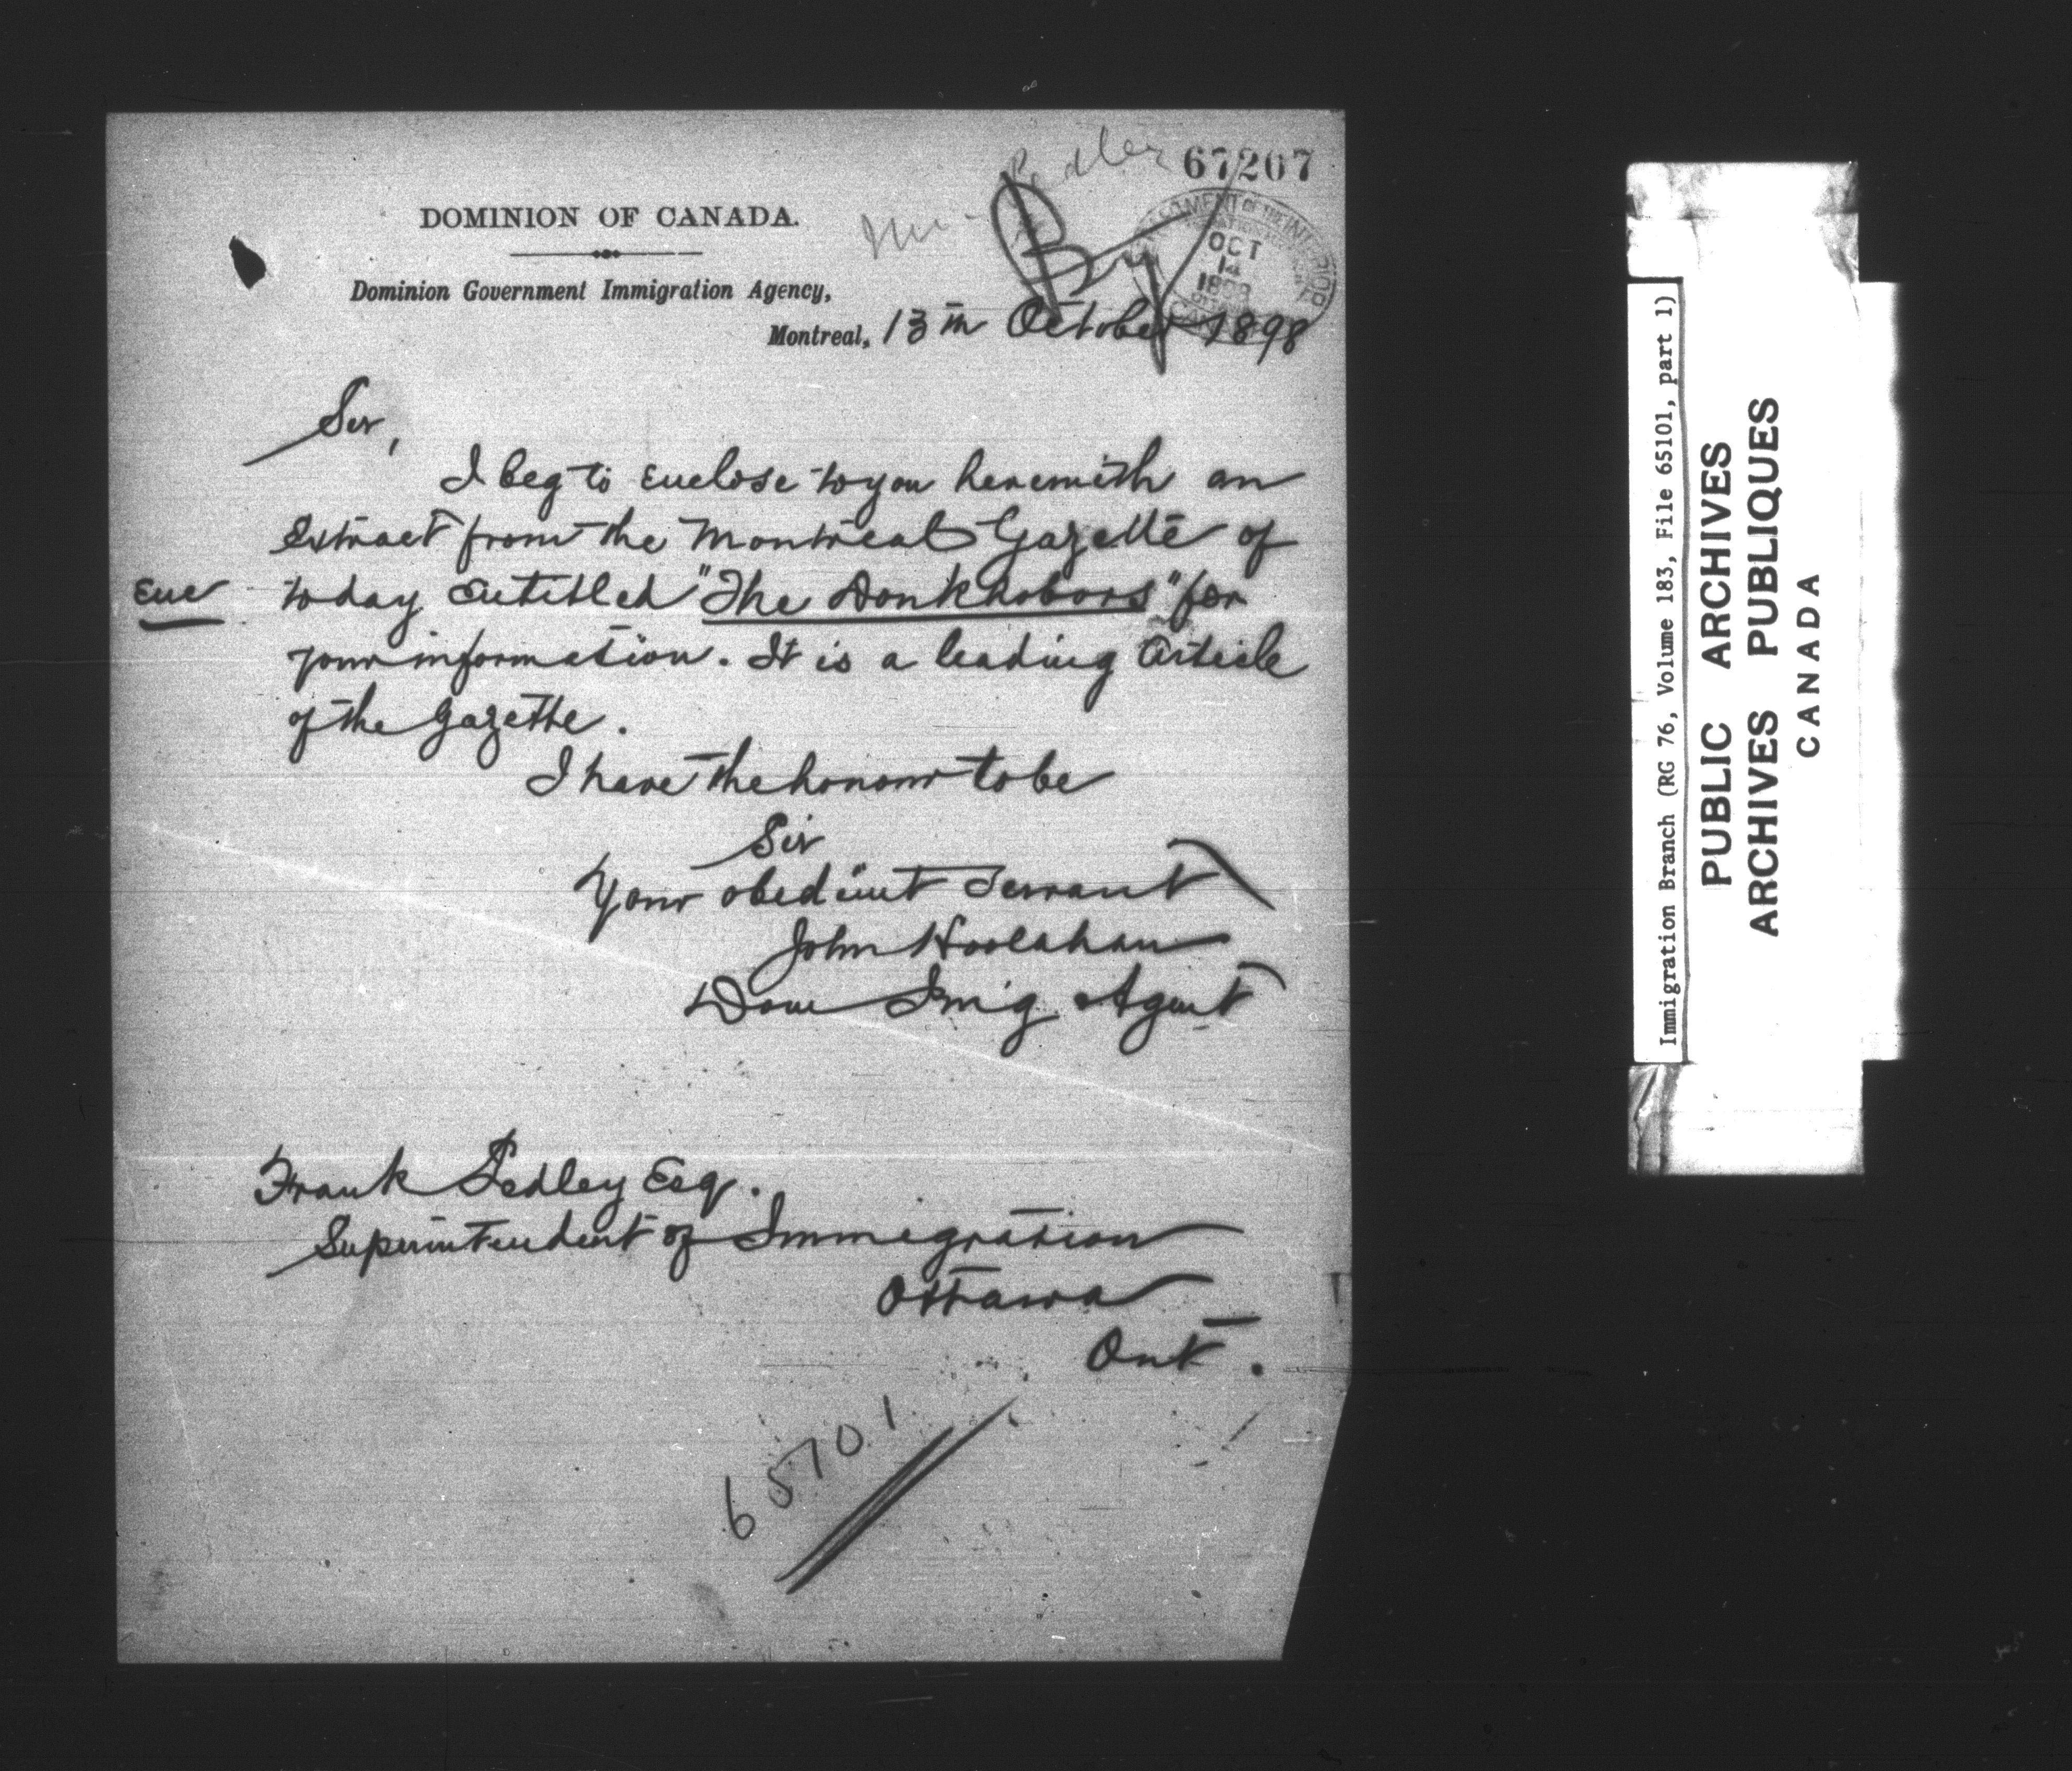 67207
Mr. Pedley
DOMINION OF CANADA.
Dominion Government Immigration Agency,
Montreal, 13th October 1898
OCT
14
1898
Sir,
I beg to enclose to you herewith an
extract from the Montreal Gazette of
Enc today entitled "The Doukhobors" for
your information. It is a leading article
of the Gazette.
I have the honour to be
Sir
Your obedient servant
John Hoolahan
Dom Im'g Agent
Frank Pedley Esq.
Superintendent of Immigration
Ottawa
Ont.
65101
Immigration Branch (RG 76, Volume 183, File 65101, part 1)
PUBLIC ARCHIVES
ARCHIVES PUBLIQUES
CANADA